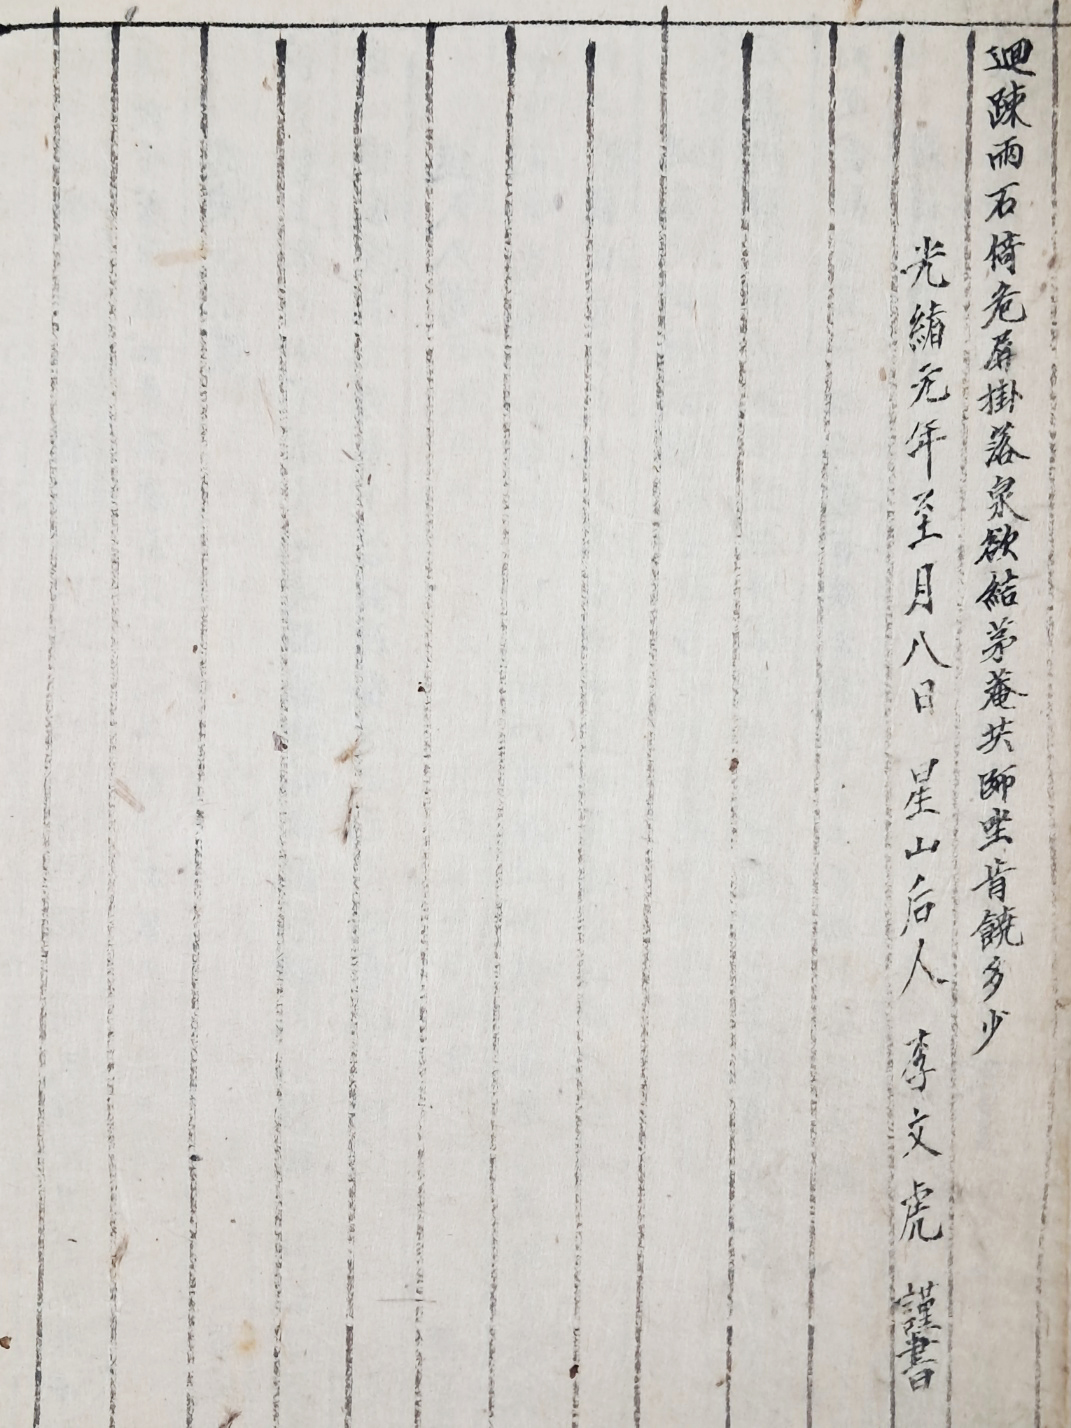 迴踈雨石倚危屏掛落泉欲結茅菴共師坐肯饒多少
光緒元年至月八日 星山后人 李文虎 謹書